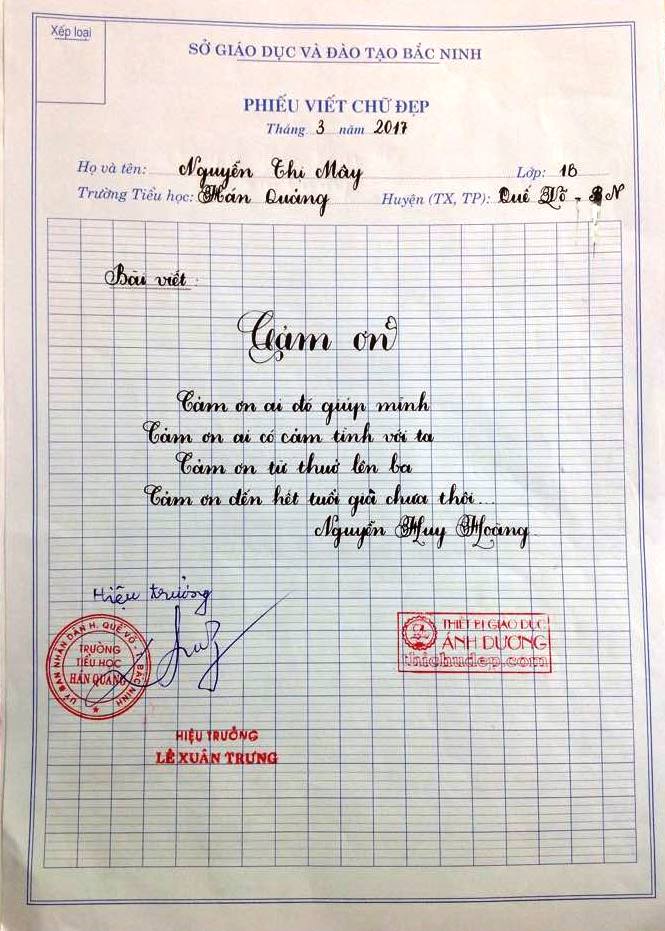 Xếp loại
SỞ GIÁO DỤC VÀ ĐÀO TẠO BẮC NINH
PHIẾU VIẾT CHỮ ĐẸP
Tháng 3 năm 2017
Họ và tên: Nguyễn Thị Mây Lớp: 1B
Trường Tiểu học: Hán Quảng Huyện (TX, TP): Quế Võ - BN
Bài viết:
Cảm ơn
Cảm ơn ai đó giúp mình
Cảm ơn ai có cảm tình với ta
Cảm ơn từ thuở lên ba
Cảm ơn đến hết tuổi già chưa thôi...
Nguyễn Huy Hoàng
Hiệu trưởng
ỦY BAN NHÂN DÂN H. QUẾ VÕ - T. BẮC NINH
TRƯỜNG
TIỂU HỌC
HÁN QUẢNG
THIẾT BỊ GIÁO DỤC
ÁNH DƯƠNG
thichudep.com
HIỆU TRƯỞNG
LÊ XUÂN TRƯNG